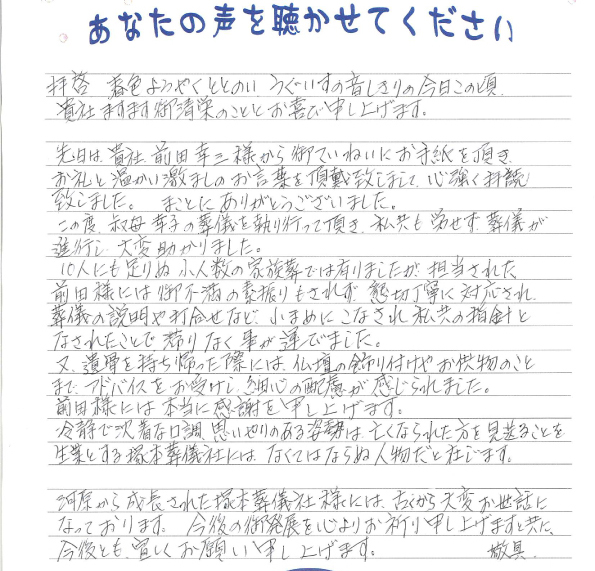 あなたの声を聴かせてください
拝啓 春色ようやくととのい、うぐいすの音しきりの今日この頃、
貴社ますます御清栄のこととお喜び申し上げます。
先日は、貴社 前田幸三様から御ていねいにお手紙を頂き、
お礼と温かい激ましのお言葉を頂戴致しまして、心強く拝読
致しました。 まことにありがとうございました。
この度、叔母 幸子の葬儀を執り行って頂き、私共も労せず葬儀が
進行し、大変助かりました。
10人にも足りぬ小人数の家族葬では有りましたが、担当された
前田様には御不満の素振りもされず、懇切丁寧に対応され、
葬儀の説明や打合せなど、小まめにこなされ私共の指針と
なされたことで滞りなく事が運びました。
又、遺骨を持ち帰った際には、仏壇の飾り付けやお供物のこと
まで、アドバイスをお受けし、細心の配慮が感じられました。
前田様には本当に感謝を申し上げます。
冷静で沈着な口調、思いやりのある姿勢は、亡くなられた方を見送ることを
生業とする塚本葬儀社には、なくてはならぬ人物だと存じます。
河原から成長された塚本葬儀社様には、古くから大変お世話に
なっております。 今後の御発展を心よりお祈り申し上げますと共に、
今後とも、宜しくお願い申し上げます。 敬具